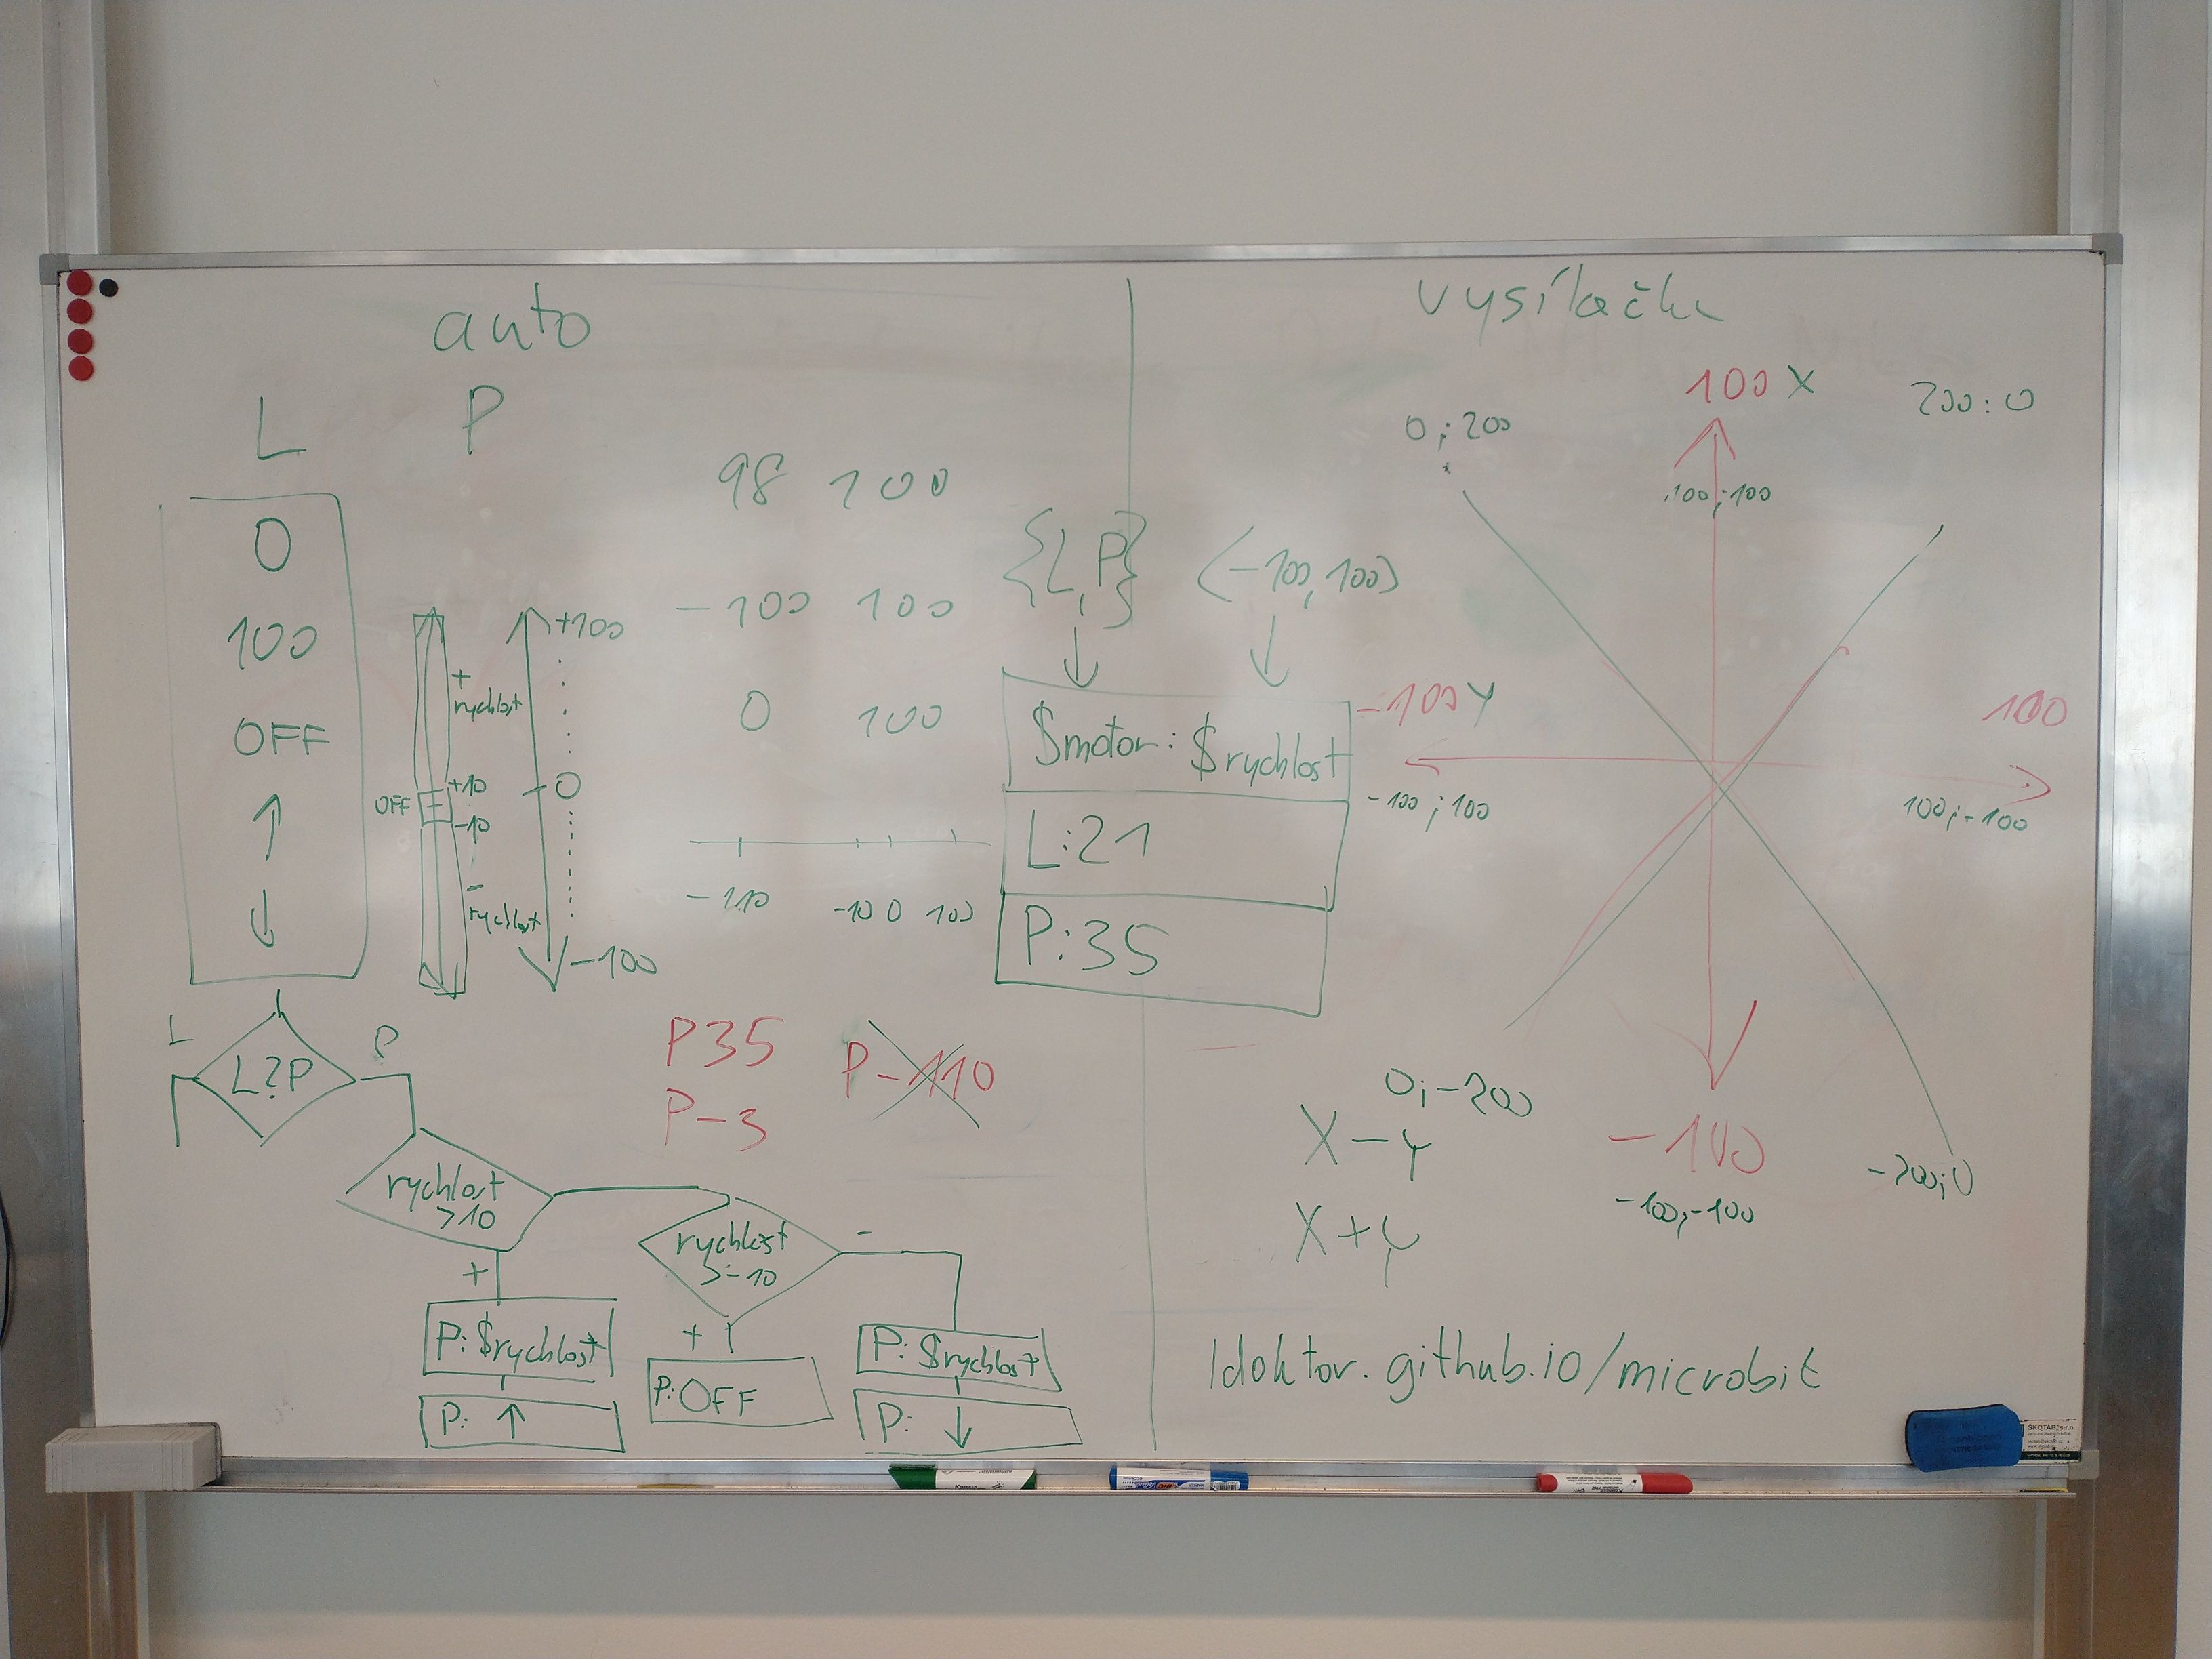 auto
L
P
0
100
OFF
↑
↓
+
rychlost
+10
OFF
-10
-
rychlost
+100
0
-100
98 100
-100 100
0 100
-110 -10 0 100
{L,P} (-100,100)
$motor: $rychlost
L:21
P:35
L
L?P
P
P35
P-3
P-110
rychlost
>10
+
P: $rychlost
P: ↑
rychlost
>-10
+
P: OFF
-
P: $rychlost
P: ↓
100 X
0;200
200:0
100;100
-100 Y
100
-100;100
100;-100
0;-200
X-y
-100
-100;-100
-200;0
X+y
ldoktor.github.io/microbit
ŠKOTAB, s.r.o.